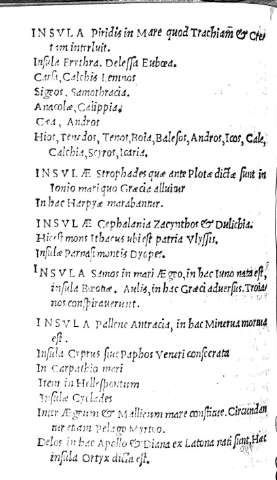 INSVLA Piridis in Mare quod Trachiam & Cre
tam interluit.
Insula Erithra. Delessa Eubœa.
Carsi, Calchis Lemnos
Sigeos. Samothracia.
Anacolæ, Calippia.
Cea, Andros
Hios, Tenedos, Tenos, Roia, Balesos, Andros, Icos, Cale,
Calchia, Scyros, Icaria.
INSVLÆ Strophades quæ ante Plotæ dictæ sunt in
Ionio mari quo Græcia alluitur
In hac Harpyæ morabantur.
INSVLÆ Cephalania Zacynthos & Dulichia.
Hic est mons Ithacus ubi est patria Vlyssis.
Insulæ Parnasi montis Dyopes.
INSVLA Samos in mari Ægeo, in hac Iuno nata est,
insula Aulis, in hac Græci aduersus Troia
nos conspirauerunt.
INSVLA Pallene Antracia, in hac Minerua morata
est.
Insula Cyprus siue Paphos Veneri consecrata
In Carpathio mari
Item in Hellespontum
Insulæ Cyclades
Inter Ægeum & Malticum mare constitutæ. Circundan
tur etiam pelago Myrteo.
Delos in hac Apollo & Diana ex Latona nati sunt, Hæc
insula Ortyx dicta est.